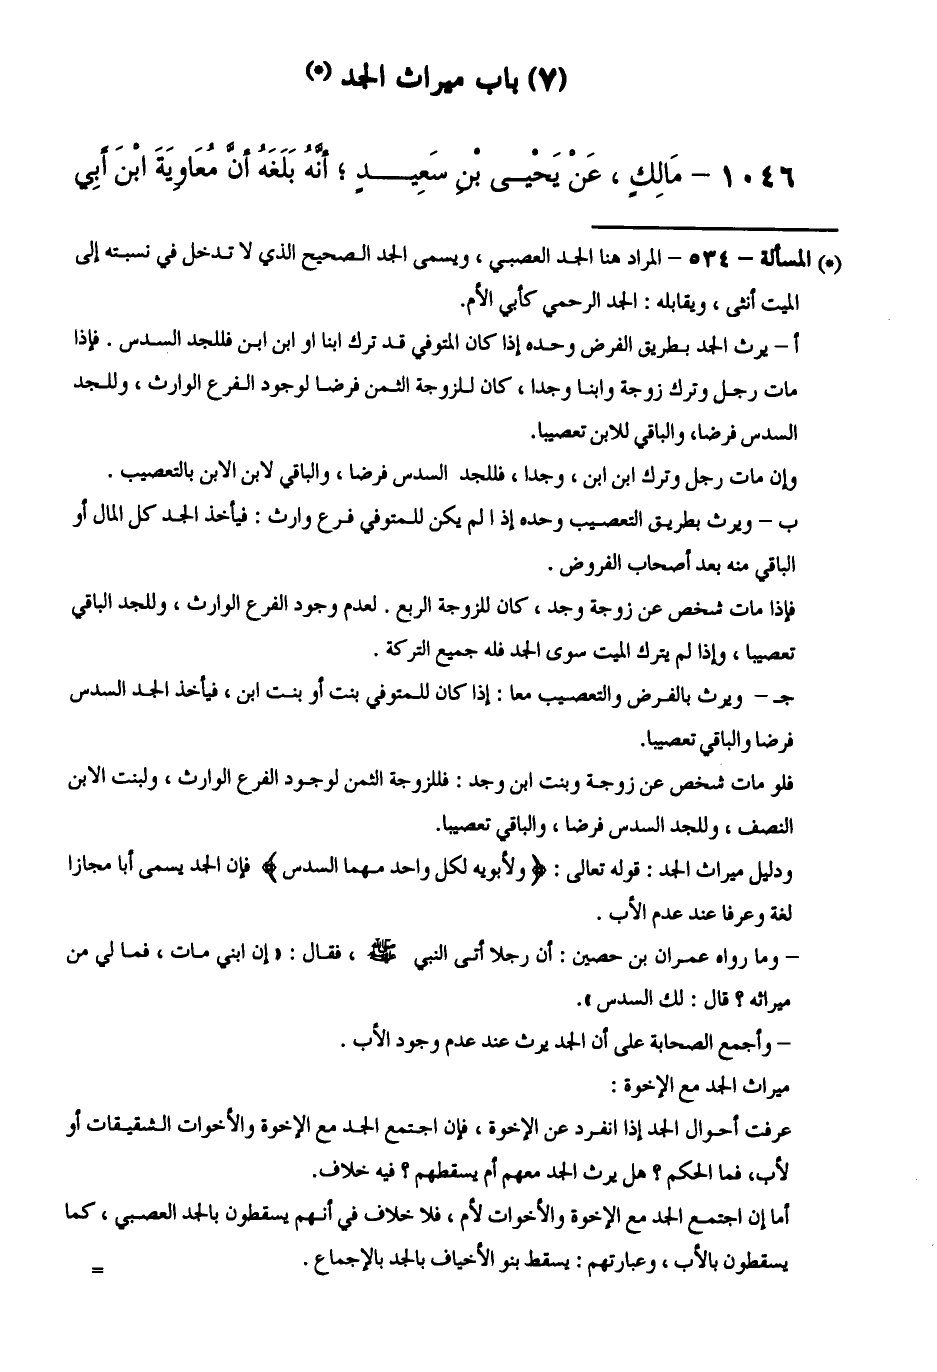 (٧) باب ميراث الجد (*)
١٠٤٦ – مَالِكٍ ، عَنْ يَحْيَى بْنِ سَعِيدٍ ؛ أَنَّهُ بَلَغَهُ أَنَّ مُعَاوِيَةَ ابْنَ أَبِي
(*) المسألة – ٥٣٤ – المراد هنا الجد العصبي ، ويسمى الجد الصحيح الذي لا تدخل في نسبته إلى
الميت أنثى ، ويقابله : الجد الرحمي كأبي الأم.
أ – يرث الجد بطريق الفرض وحده إذا كان المتوفي قد ترك ابنا او ابن ابن فللجد السدس . فإذا
مات رجل وترك زوجة وابنا وجدا ، كان للزوجة الثمن فرضا لوجود الفرع الوارث ، وللجد
السدس فرضا، والباقي للابن تعصيبا.
وإن مات رجل وترك ابن ابن ، وجدا ، فللجد السدس فرضا ، والباقي لابن الابن بالتعصيب .
ب – ويرث بطريق التعصيب وحده إذ ا لم يكن للمتوفي فرع وارث : فيأخذ الجد كل المال أو
الباقي منه بعد أصحاب الفروض .
فإذا مات شخص عن زوجة وجد ، كان للزوجة الربع . لعدم وجود الفرع الوارث ، وللجد الباقي
تعصيبا ، وإذا لم يترك الميت سوى الجد فله جميع التركة .
جـ – ويرث بالفرض والتعصيب معا : إذا كان للمتوفي بنت أو بنت ابن ، فيأخذ الجد السدس
فرضا والباقي تعصيبا.
فلو مات شخص عن زوجة وبنت ابن وجد : فللزوجة الثمن لوجود الفرع الوارث ، ولبنت الابن
النصف ، وللجد السدس فرضا ، والباقي تعصيبا.
ودليل ميراث الجد : قوله تعالى : ﴿ ولأبويه لكل واحد مهما السدس ﴾ فإن الجد يسمى أبا مجازا
لغة وعرفا عند عدم الأب .
– وما رواه عمران بن حصين : أن رجلا أتى النبي ﷺ ، فقال : « إن ابني مات ، فما لي من
ميراثه ؟ قال : لك السدس » .
– وأجمع الصحابة على أن الجد يرث عند عدم وجود الأب .
ميراث الجد مع الإخوة :
عرفت أحوال الجد إذا انفرد عن الإخوة ، فإن اجتمع الجد مع الإخوة والأخوات الشقيقات أو
لأب، فما الحكم ؟ هل يرث الجد معهم أم يسقطهم ؟ فيه خلاف.
أما إن اجتمع الجد مع الإخوة والأخوات لأم ، فلا خلاف في أنهم يسقطون بالجد العصبي ، كما
يسقطون بالأب ، وعبارتهم : يسقط بنو الأخياف بالجد بالإجماع .
=